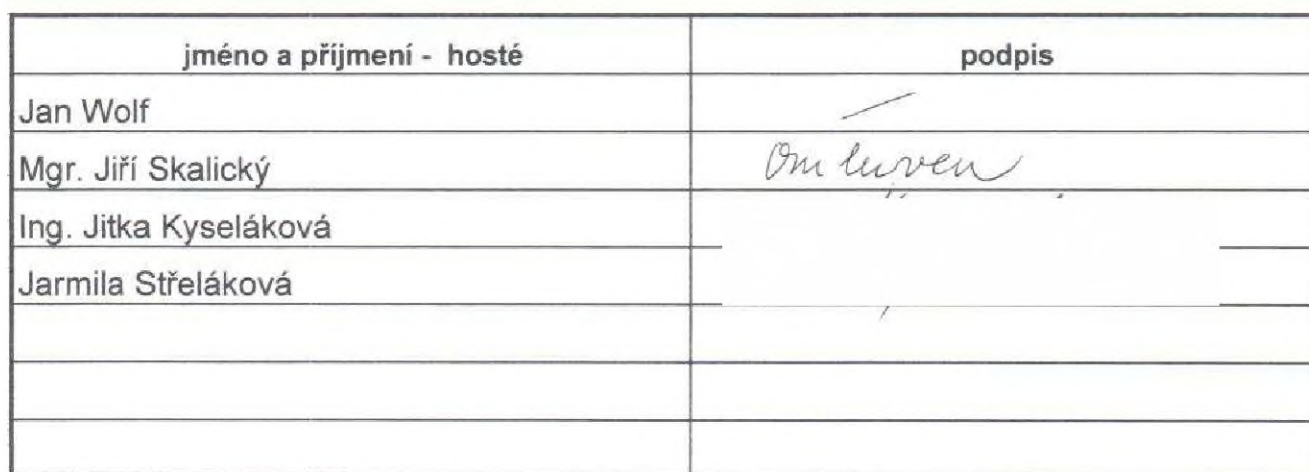 jméno a příjmení - hosté podpis
Jan Wolf
Mgr. Jiří Skalický Omluven
Ing. Jitka Kyseláková
Jarmila Střeláková